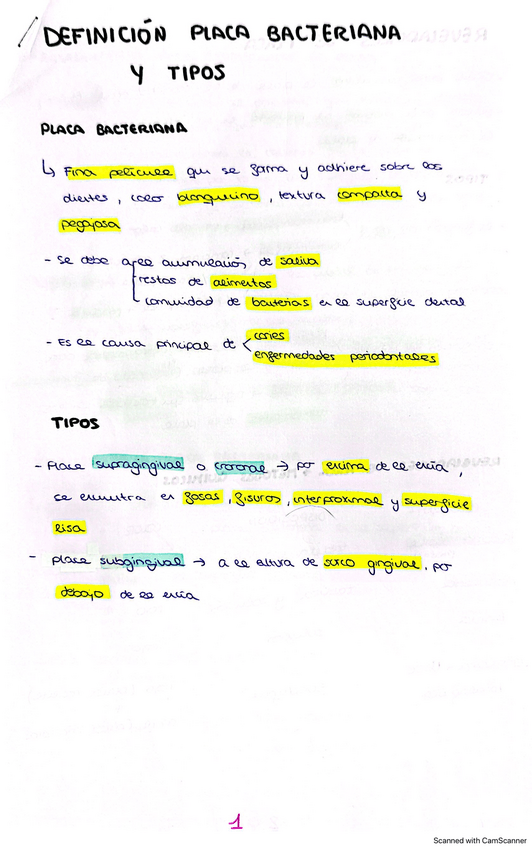 DEFINICIÓN PLACA BACTERIANA
Y TIPOS
PLACA BACTERIANA
↳ Fina película que se forma y adhiere sobre los
dientes, color blanquino, textura compacta y
pegajosa
- Se debe a la acumulación de saliva
restos de alimentos
comunidad de bacterias en la superficie dental
- Es la causa principal de < caries
enfermedades periodontales
TIPOS
- Placa supragingival o coronal → por encima de la encía,
se encuentra en fosas, fisuras, interproximal y superficie
lisa
- placa subgingival → a la altura de surco gingival, por
debajo de la encía
1
Scanned with CamScanner